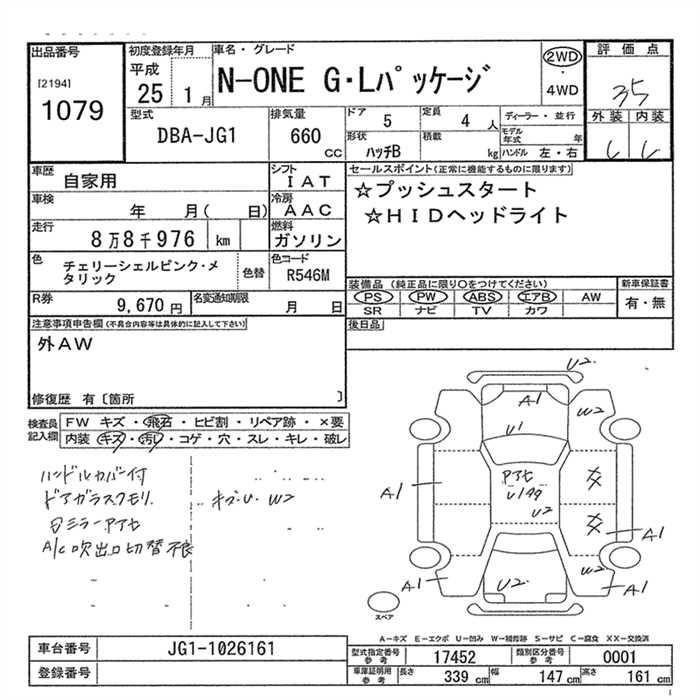 出品番号
[2194]
1079
初度登録年月
平成
25 1 月
車名・グレード
N-ONE G・Lパッケージ
2WD
・
4WD
評価点
35
外装 内装
型式
DBA-JG1
排気量
660
CC
ドア 5
定員 4 人
形状 ハッチB
積載 kg
ディーラー・並行
モデル年式 年
ハンドル 左・右
車歴 自家用
シフト IAT
車検 年 月( 日)
冷房 AAC
走行 8万8千976 km
燃料 ガソリン
色 チェリーシェルピンク・メ
タリック
色替
色コード R546M
R券 9,670 円
名変通知期限 月 日
セールスポイント(正常に機能するものに限ります)
☆プッシュスタート
☆HIDヘッドライト
装備品 (純正品に限り○をつけてください)
PS PW ABS エアB AW
SR ナビ TV カワ
新車保証書
有・無
後日品
注意事項申告欄(不具合内容等は具体的に記入して下さい)
外AW
修復歴 有〔箇所 〕
検査員
記入欄
FW キズ・飛石・ヒビ割・リペア跡・×要
内装・キズ・汚レ・コゲ・穴・スレ・キレ・破レ
ハンドルカバー付
ドアガラスクモリ
キズ・U W2
ミラーアセ
A/C吹出口切替不良
U2
A1
W2
U1
アセ
U2
A1
A1
W2
A1
U2
A1
スペア
A－キズ E－エクボ U－凹み W－補修跡 S－サビ C－腐食 XX－交換済
車台番号 JG1-1026161
登録番号
型式指定番号
参考
17452
類別区分番号
参考
0001
車庫証明用
参考
長さ 339 cm
幅 147 cm
高さ 161 cm